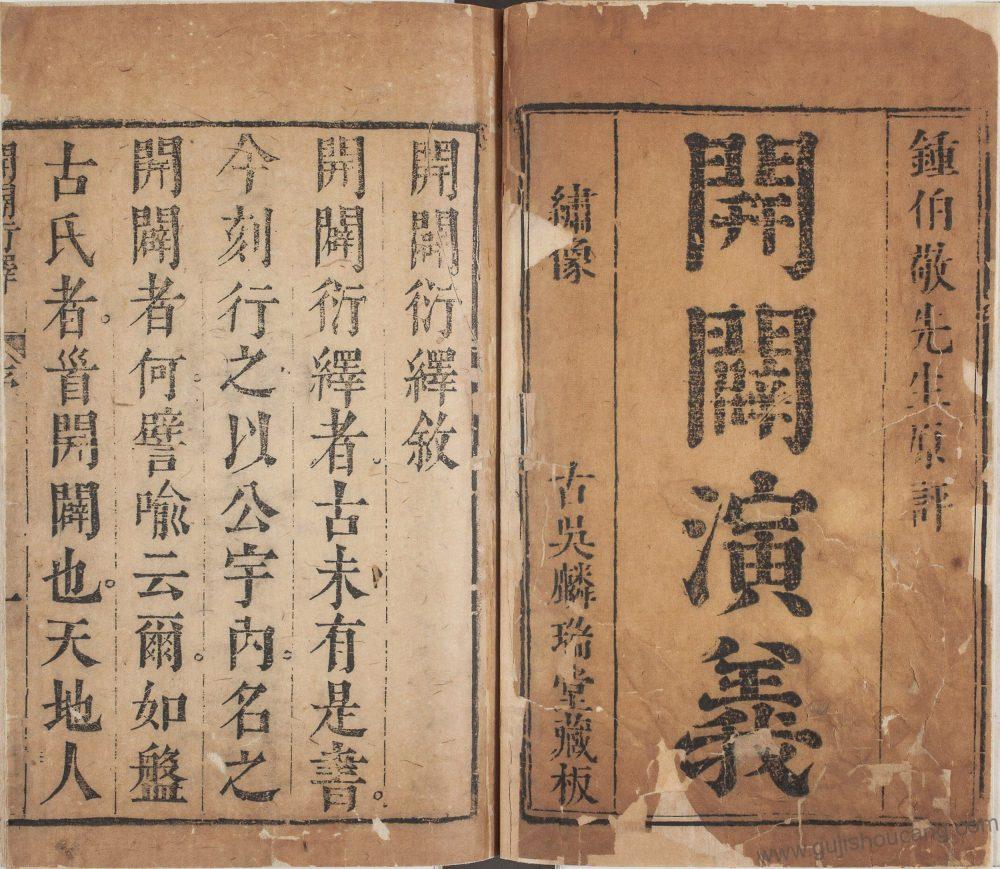 鍾伯敬先生原評
開闢演義
繡像
古吳麟瑞堂藏板
開闢衍繹敘
開闢衍繹者古未有是書。
今刻行之以公宇內。名之
開闢者何。譬喻云爾。如盤
古氏者。首開闢也。天地人
開闢衍繹
序
一
www.gujishoucang.com